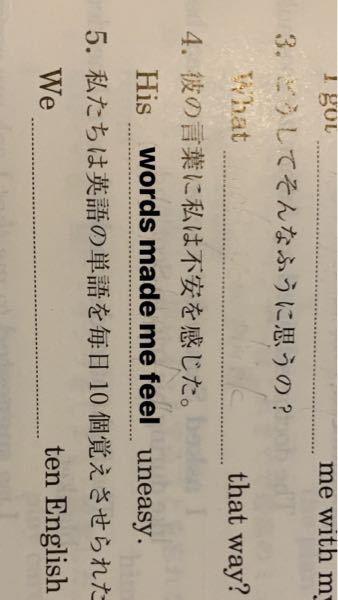 I got me with my
3. どうしてそんなふうに思うの？
What that way?
4. 彼の言葉に私は不安を感じた。
His words made me feel uneasy.
5. 私たちは英語の単語を毎日10個覚えさせられた
We ten English